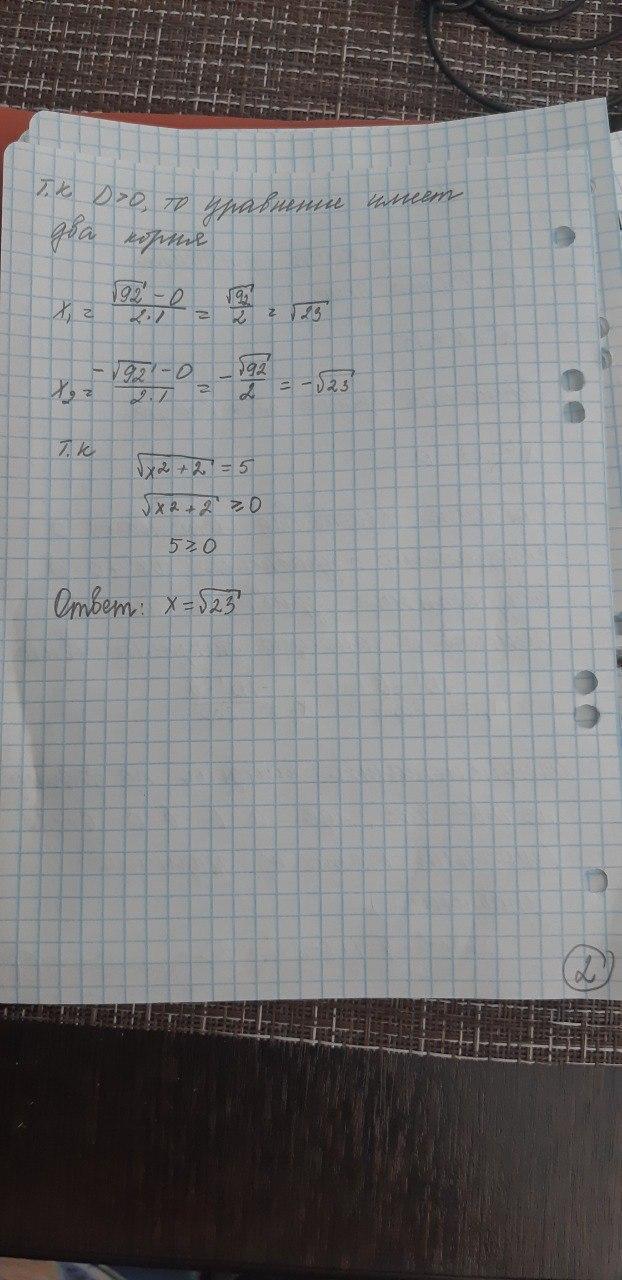 Т.к D>0, то уравнение имеет
два корня
x₁ = (√92 - 0)/(2·1) = √92/2 = √23
x₂ = (-√92 - 0)/(2·1) = -√92/2 = -√23
Т.к
√(x2+2) = 5
√(x2+2) ≥ 0
5 ≥ 0
Ответ: x = √23
2